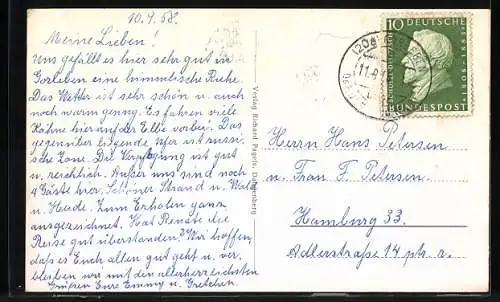 10.9.58.
Meine Lieben!
Uns gefällt es hier sehr gut in
Gorleben eine himmlische Ruhe.
Das Wetter ist sehr schön u. auch
noch warm genug. Es fahren viele
Kähne hier auf der Elbe vorbei. Das
gegenüber liegende Ufer ist russi-
sche Zone. Die Verpflegung ist gut
u. reichlich. Außer uns sind noch
4 Gäste hier. Schöner Strand u. Wald
u. Heide. Zum Erholen ganz
ausgezeichnet. Hat Renate die
Reise gut überstanden? Wir hoffen,
daß es Euch allen gut geht u. ver-
bleiben wir mit den allerherzlichsten
Grüßen Eure Emmy u. Gretchen.
Verlag Richard Pagels, Dannenberg
10 DEUTSCHE
BUNDESPOST
Herrn Hans Petersen
u. Frau F. Petersen.
Hamburg 33.
Adlerstraße 14 ptr. r.